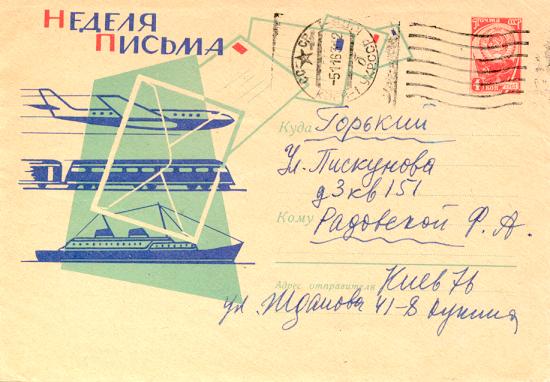 НЕДЕЛЯ
ПИСЬМА
ПОЧТА СССР
Куда Горький
Ул. Пискунова
д 3 кв 151
Кому Радовской Ф. А.
Адрес отправителя Киев 76
ул. Жданова 41-8